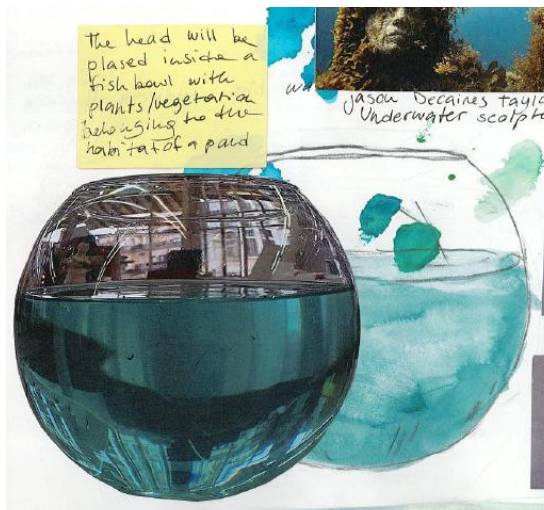 The head will be
plased inside a
fish bowl with
plants/vegetation
belonging to the
habitat of a pond
Jason Decaires taylo
Underwater sculpt